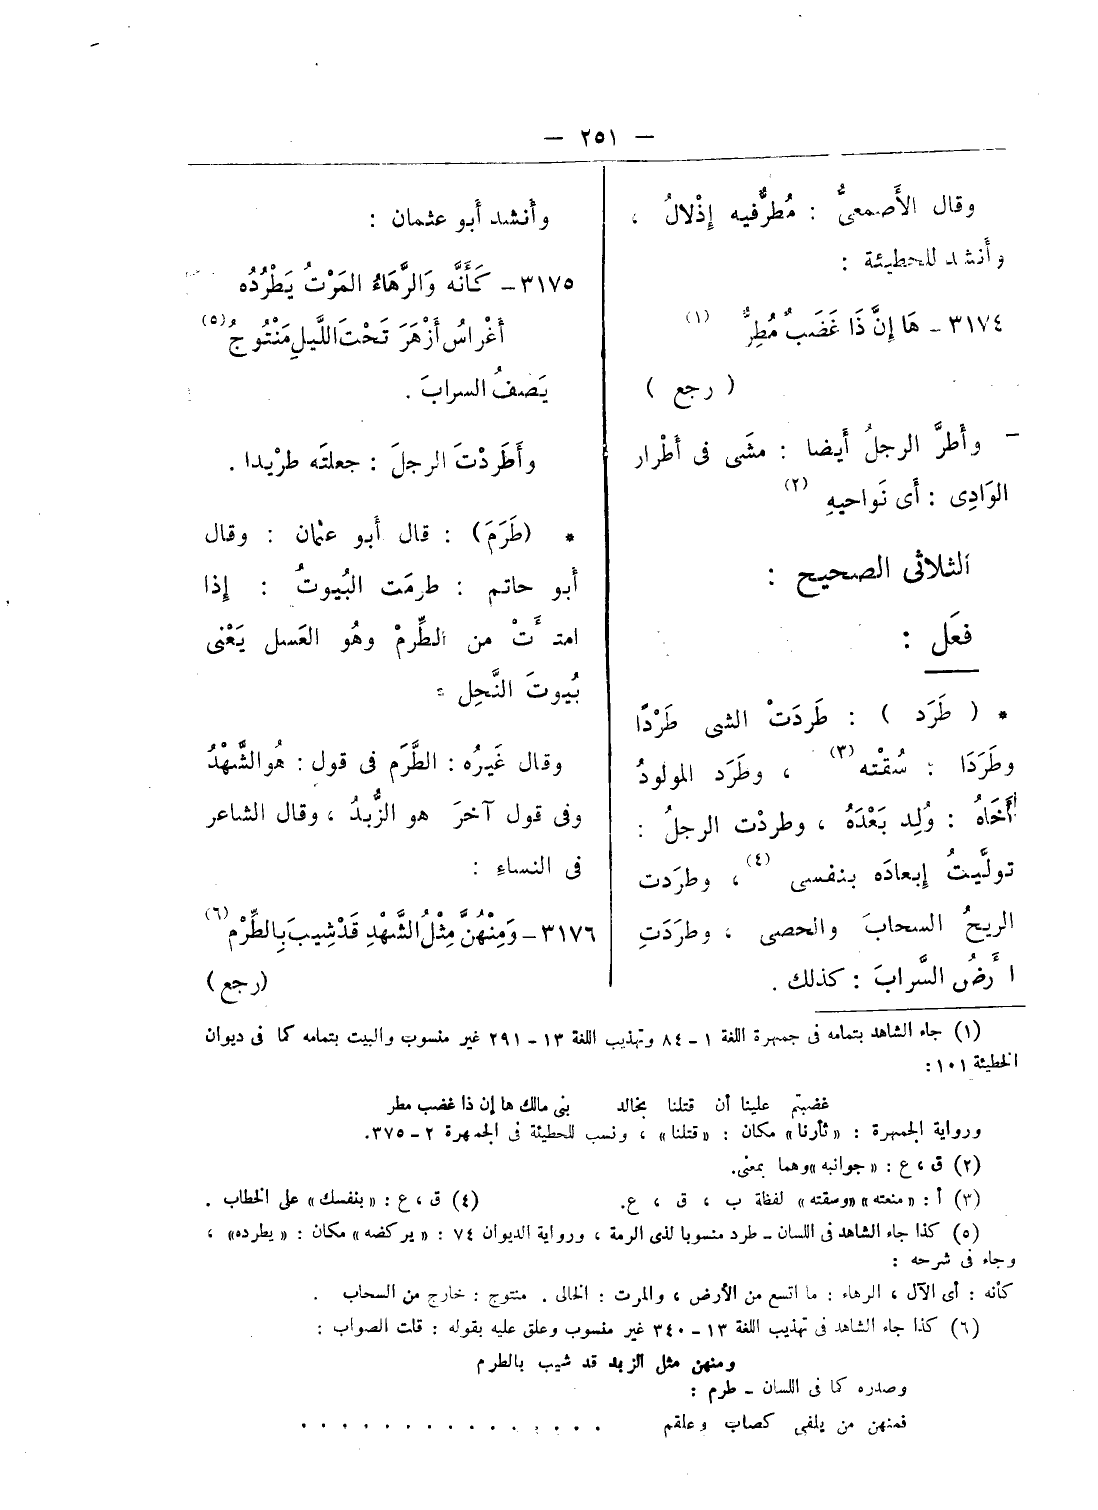 — ٢٥١ —
وقال الأَصمعىُّ : مُطِرٌّفيه إِذْلالُ ،
وأَنشد للحطيئة :
٣١٧٤ – هَا إِنَّ ذَا غَضَبٌ مُطِرٌّ (١)
( رجع )
– وأَطرَّ الرجلُ أَيضا : مشَى فى أَطْرار
الوَادِى : أَى نَواحيهِ (٢)
الثلاثى الصحيح :
فعَل :
* ( طَرَد ) : طَردَتْ الشى طَرْدًا
وطَرَدَا : سُقْته (٣) ، وطَرَد المولودُ
أَخَاهُ : وُلِد بَعْدَهُ ، وطردْت الرجلُ :
تولَّيتُ إِبعادَه بنفسى (٤) ، وطرَدت
الريحُ السحابَ والحصى ، وطرَدَتِ
الأَرضُ السَّرابَ : كذلك .
وأَنشد أَبو عثمان :
٣١٧٥ – كَأَنَّه وَالرَّهَاءُ المَرْتُ يَطْرُدُه
أَغْراسُ أَزْهَرَ تَحْتَ اللَّيلِ مَنْتُوجُ (٥)
يَصَفُ السرابَ .
وأَطَردْتَ الرجلَ : جعلتَه طرْيدا .
* (طَرَمَ) : قال أَبو عثمان : وقال
أَبو حاتم : طرمَت البُيوتُ : إِذا
امتـ أَتْ من الطِّرمْ وهُو العَسل يَعْنى
بُيوتَ النَّحِل :
وقال غَيرُه : الطَّرَم فى قول : هُو الشَّهْدُ
وفى قول آخرَ هو الزُّبدُ ، وقال الشاعر
فى النساءِ :
٣١٧٦ – وَمِنْهُنَّ مِثْلُ الشَّهْدِ قَدْ شِيبَ بِالطِّرْمِ (٦)
(رجع)
(١) جاء الشاهد بتمامه فى جمهرة اللغة ١ – ٨٤ وتهذيب اللغة ١٣ – ٢٩١ غير منسوب والبيت بتمامه كما فى ديوان
الحطيئة ١٠١ :
غضبتم علينا أن قتلنا بخالد بنى مالك ها إن ذا غضب مطر
ورواية الجمهرة : «ثأرنا» مكان : «قتلنا» ، ونسب للحطيئة فى الجمهرة ٢ – ٣٧٥.
(٢) ق ، ع : «جوانبه» وهما بمعنى.
(٣) أ : «منعته» «وسقته» لفظة ب ، ق ، ع. (٤) ق ، ع : «بنفسك» على الخطاب .
(٥) كذا جاء الشاهد فى اللسان – طرد منسوبا لذى الرمة ، ورواية الديوان ٧٤ : «يركضه» مكان : «يطرده» ،
وجاء فى شرحه :
كأنه : أى الآل ، الرهاء : ما اتسع من الأرض ، والمرت : الخالى . منتوج : خارج من السحاب .
(٦) كذا جاء الشاهد فى تهذيب اللغة ١٣ – ٣٤٠ غير منسوب وعلق عليه بقوله : قلت الصواب :
ومنهن مثل الزبد قد شيب بالطرم
وصدره كما فى اللسان – طرم :
فمنهن من يلفى كصاب وعلقم . . . . . . . . . . . . . . .